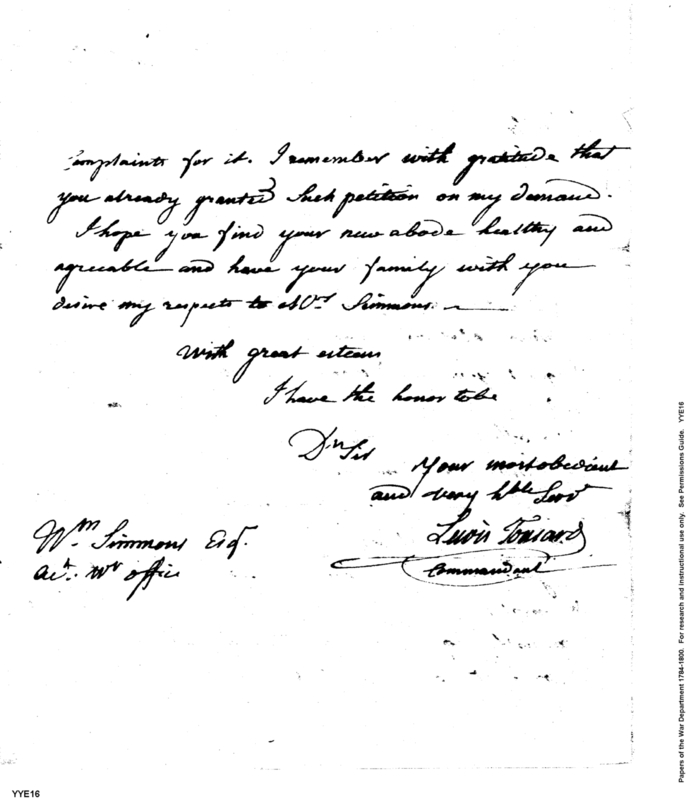 Complaints for it. I remember with gratitude that
you already granted such petition on my demand.
I hope you find your new abode healthy and
agreeable and have your family with you
desire my respects to Mrs Simmons.
With great esteem
I have the honor to be
Dr Sir
Your most obedient
and very hble Servt
Lewis Tousard
Commandant
Wm Simmons Esqr.
Act. Wr office
YYE16
Papers of the War Department 1784-1800. For research and instructional use only. See Permissions Guide. YYE16